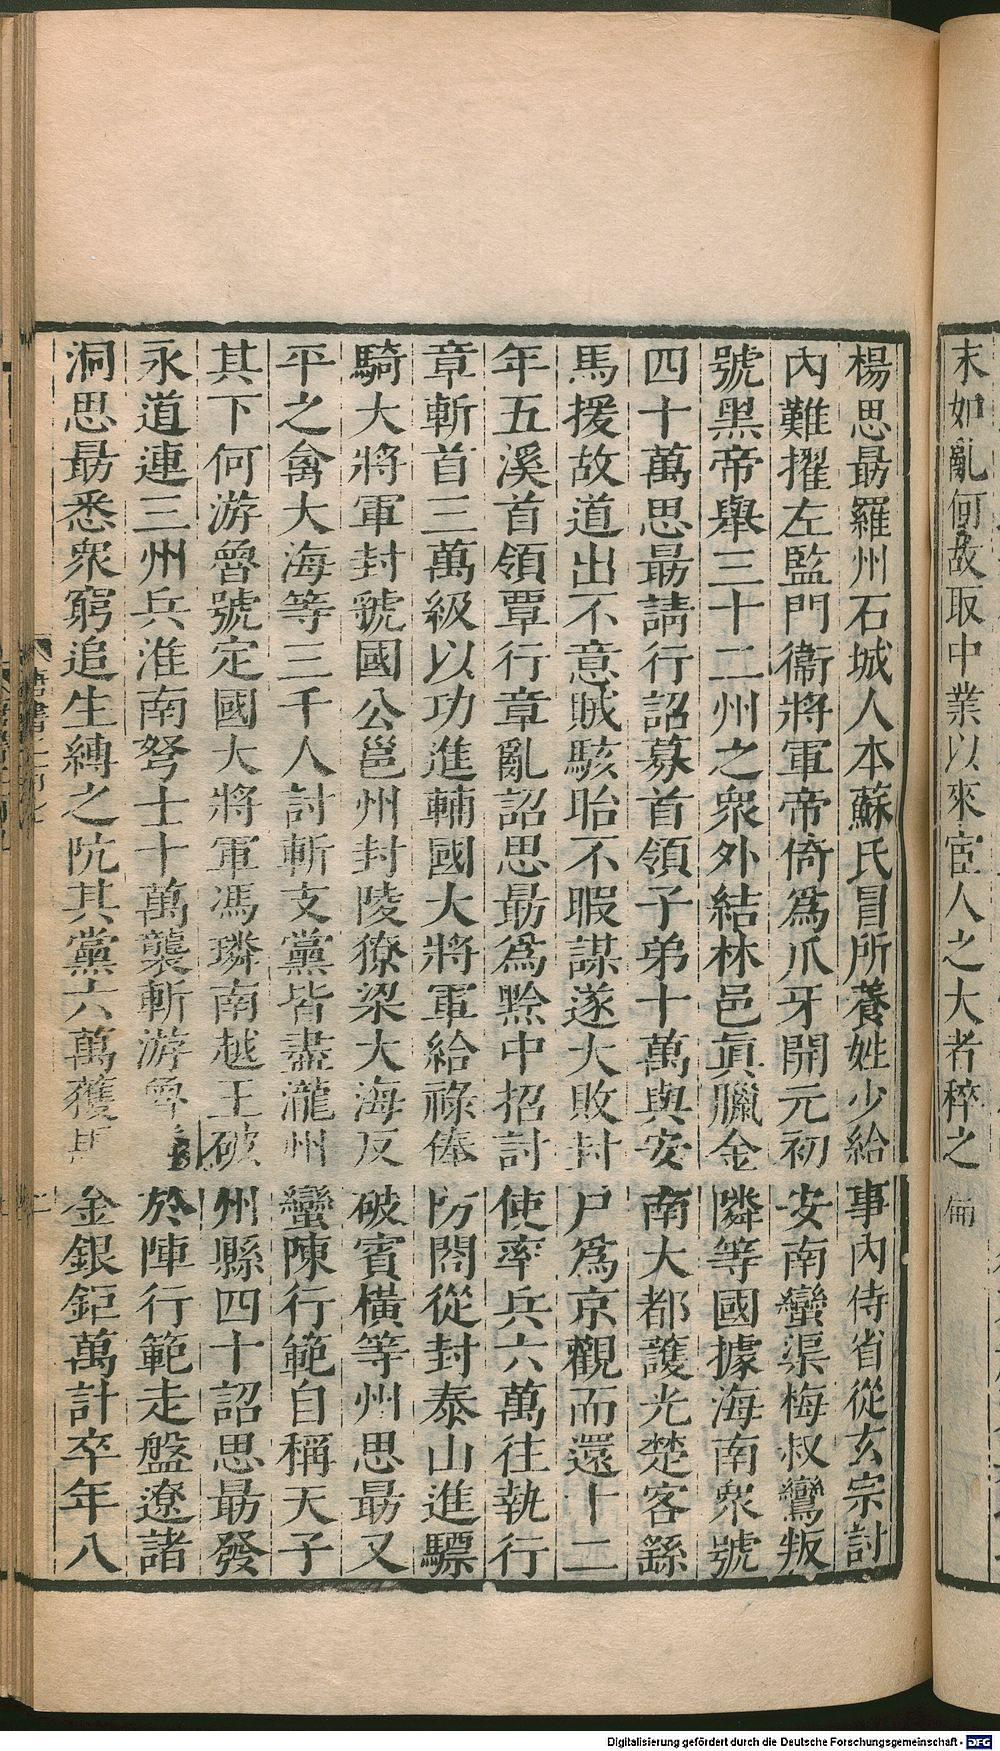 末如亂何故取中業以來宦人之大者稡之
楊思勗羅州石城人本蘇氏冒所養姓少給事內侍省從玄宗討
內難擢左監門衞將軍帝倚爲爪牙開元初安南蠻渠梅叔鸞叛
號黑帝舉三十二州之衆外結林邑眞臘金隣等國據海南衆號
四十萬思勗請行詔募首領子弟十萬與安南大都護光楚客繇
馬援故道出不意賊駭眙不暇謀遂大敗封尸爲京觀而還十二
年五溪首領覃行章亂詔思勗爲黔中招討使率兵六萬往執行
章斬首三萬級以功進輔國大將軍給祿俸防閤從封泰山進驃
騎大將軍封虢國公邕州封陵獠梁大海反破賓橫等州思勗又
平之禽大海等三千人討斬支黨皆盡瀧州蠻陳行範自稱天子
其下何游魯號定國大將軍馮璘南越王破州縣四十詔思勗發
永道連三州兵淮南弩士十萬襲斬游魯於陣行範走盤遼諸
洞思勗悉衆窮追生縛之阬其黨六萬獲馬金銀鉅萬計卒年八
Digitalisierung gefördert durch die Deutsche Forschungsgemeinschaft - DFG